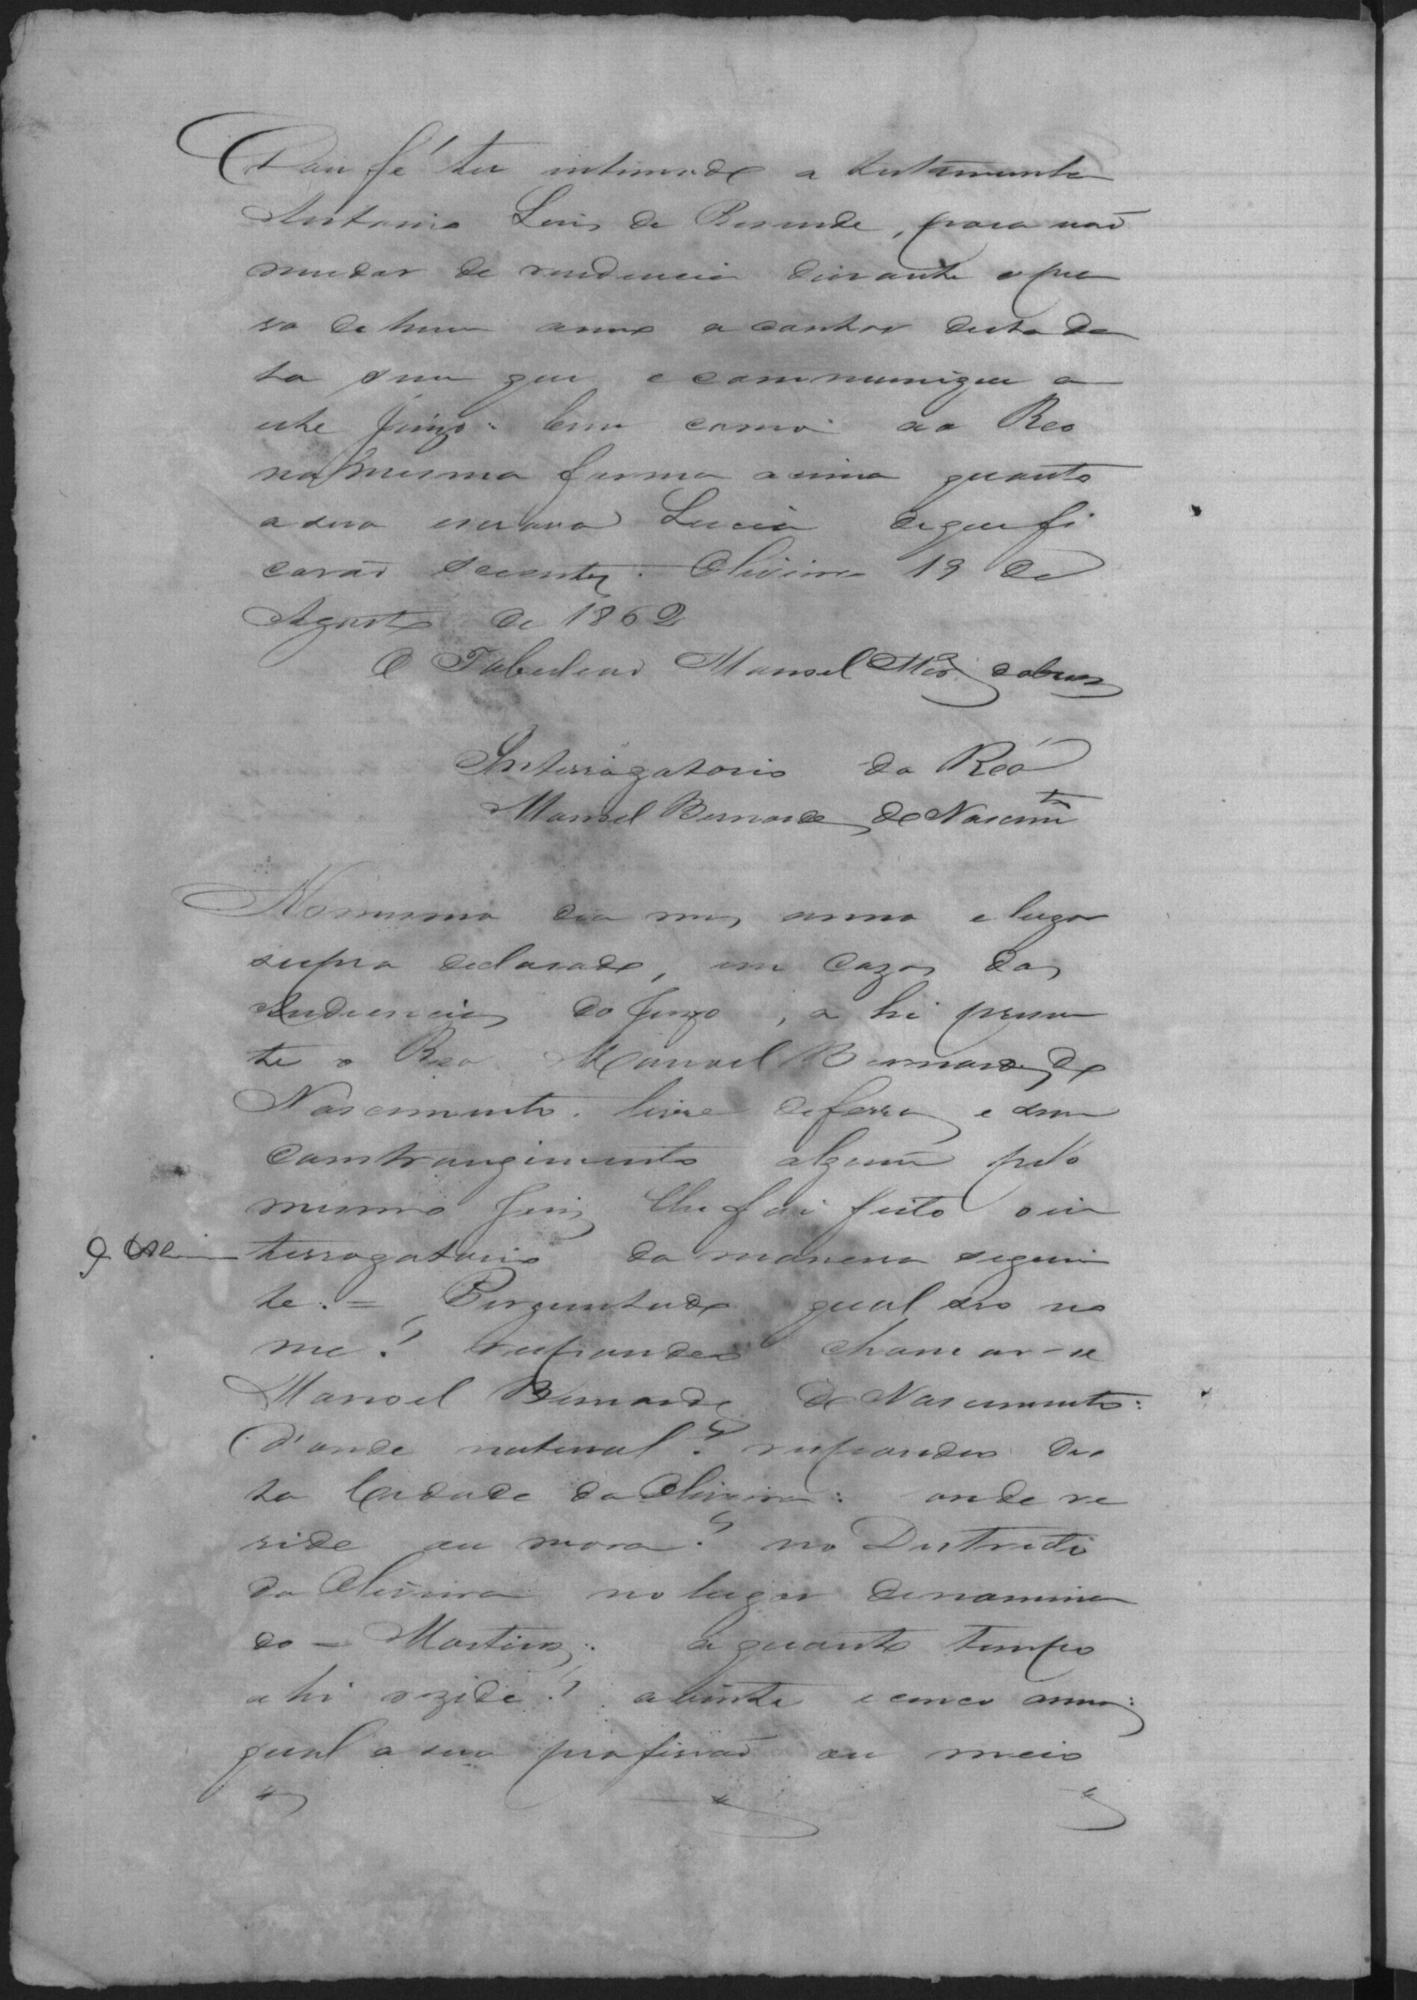 Dou fé ter intimado a testemunha
Antonio Luis de Resende, para não
mudar de residencia durante o pra
so de hum anno a contar desta da
ta sem que o communique a
este Juizo: bem como ao Reo
na mesma forma acima quanto
a sua escrava Lucia de que fi
carão scientes. Oliveira 19 de
Agosto de 1862
O Tabelião Manoel
Interrogatorio do Reó
Manoel Bernardes do Nascim.to
No mesmo dia mes anno e lugar
supra declarado, em Cazas das
Audiencias do Juizo, a hi presen
te o Reo Manoel Bernardes do
Nascimento. livre de ferros e sem
constrangimento algum pelo
mesmo Juiz lhe foi feito o in
terrogatorio da maneira seguin
te: = Perguntado qual seo no
me? respondeo chamar-se
Manoel Bernardes do Nascimento:
d'onde natural? respondeo des
ta Cidade da Oliveira: onde re
side ou mora? no Districto
da Oliveira no lugar denomina
do - Martins: a quanto tempo
a hi rezide? a vinte e cinco annos:
qual a sua profissão ou meio